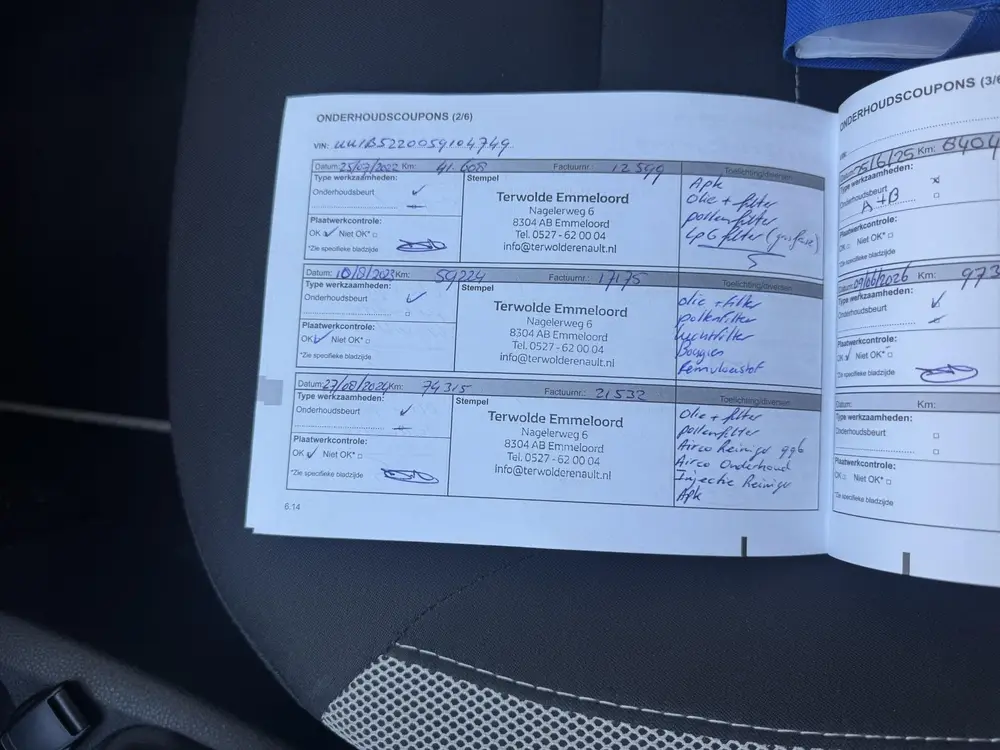 ONDERHOUDSCOUPONS (2/6)
VIN: UU1B5220059104749
Datum: 25/07/2022 Km: 41.608 Factuurnr.: 12599 Toelichting/diversen
Type werkzaamheden:
Onderhoudsbeurt
Plaatwerkcontrole:
OK Niet OK*
*Zie specifieke bladzijde
Stempel
Terwolde Emmeloord
Nagelerweg 6
8304 AB Emmeloord
Tel. 0527 - 62 00 04
info@terwolderenault.nl
Apk
olie + filter
pollenfilter
LPG filter (gasfase)
Datum: 10/8/2023 Km: 59224 Factuurnr.: 17175 Toelichting/diversen
Type werkzaamheden:
Onderhoudsbeurt
Plaatwerkcontrole:
OK Niet OK*
*Zie specifieke bladzijde
Stempel
Terwolde Emmeloord
Nagelerweg 6
8304 AB Emmeloord
Tel. 0527 - 62 00 04
info@terwolderenault.nl
olie + filter
pollenfilter
luchtfilter
Bougies
Remvloeistof
Datum: 27/08/2024 Km: 74315 Factuurnr.: 21532 Toelichting/diversen
Type werkzaamheden:
Onderhoudsbeurt
Plaatwerkcontrole:
OK Niet OK*
*Zie specifieke bladzijde
Stempel
Terwolde Emmeloord
Nagelerweg 6
8304 AB Emmeloord
Tel. 0527 - 62 00 04
info@terwolderenault.nl
Olie + filter
pollenfilter
Airco Reinigr
Airco Onderhoud
Injectie Reinigr
Apk
6.14
ONDERHOUDSCOUPONS (3/6
VIN:
25/6/25 Km: 8404
Type werkzaamheden:
Onderhoudsbeurt
A+B
Plaatwerkcontrole:
OK Niet OK*
*Zie specifieke bladzijde
Datum: 09/06/2026 Km: 973
Type werkzaamheden:
Onderhoudsbeurt
Plaatwerkcontrole:
OK Niet OK*
*Zie specifieke bladzijde
Datum: Km:
Type werkzaamheden:
Onderhoudsbeurt
Plaatwerkcontrole:
OK Niet OK*
*Zie specifieke bladzijde